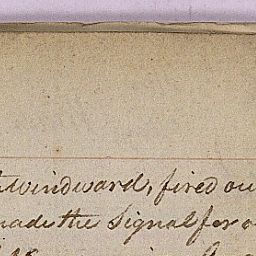 windward, fired ou
made the Signal for a